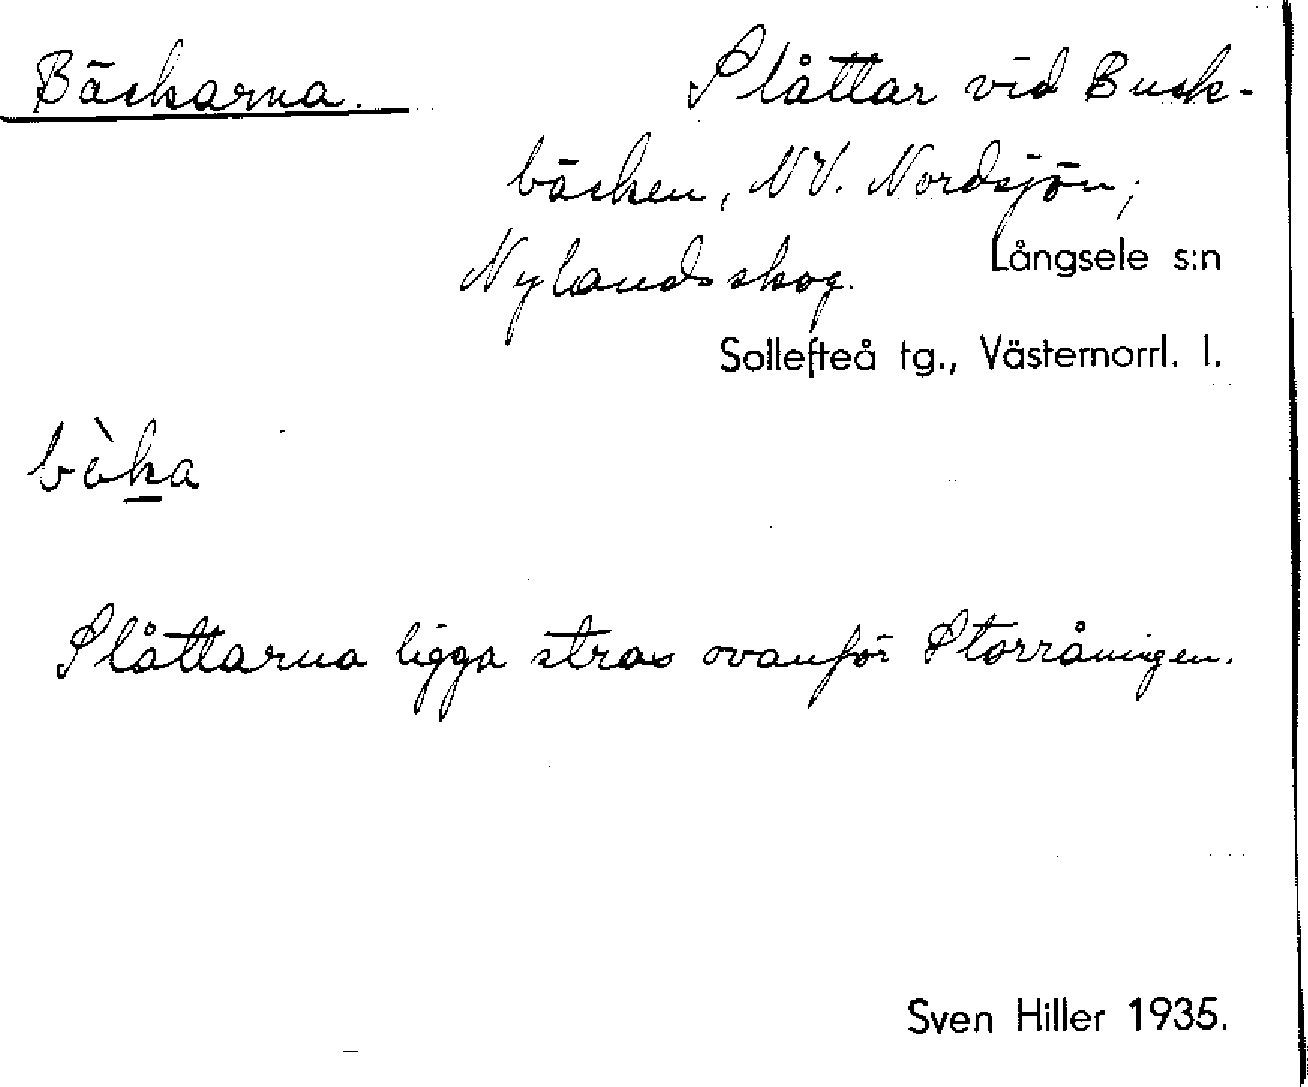 Bäckarna.
Slåttar vid Busk-
bäcken, NV. Nordsjön,
Nylandsskog.
Långsele s:n
Sollefteå tg., Västernorrl. l.
bàka
Slåttarna ligga strax ovanför Storråningen.
Sven Hiller 1935.